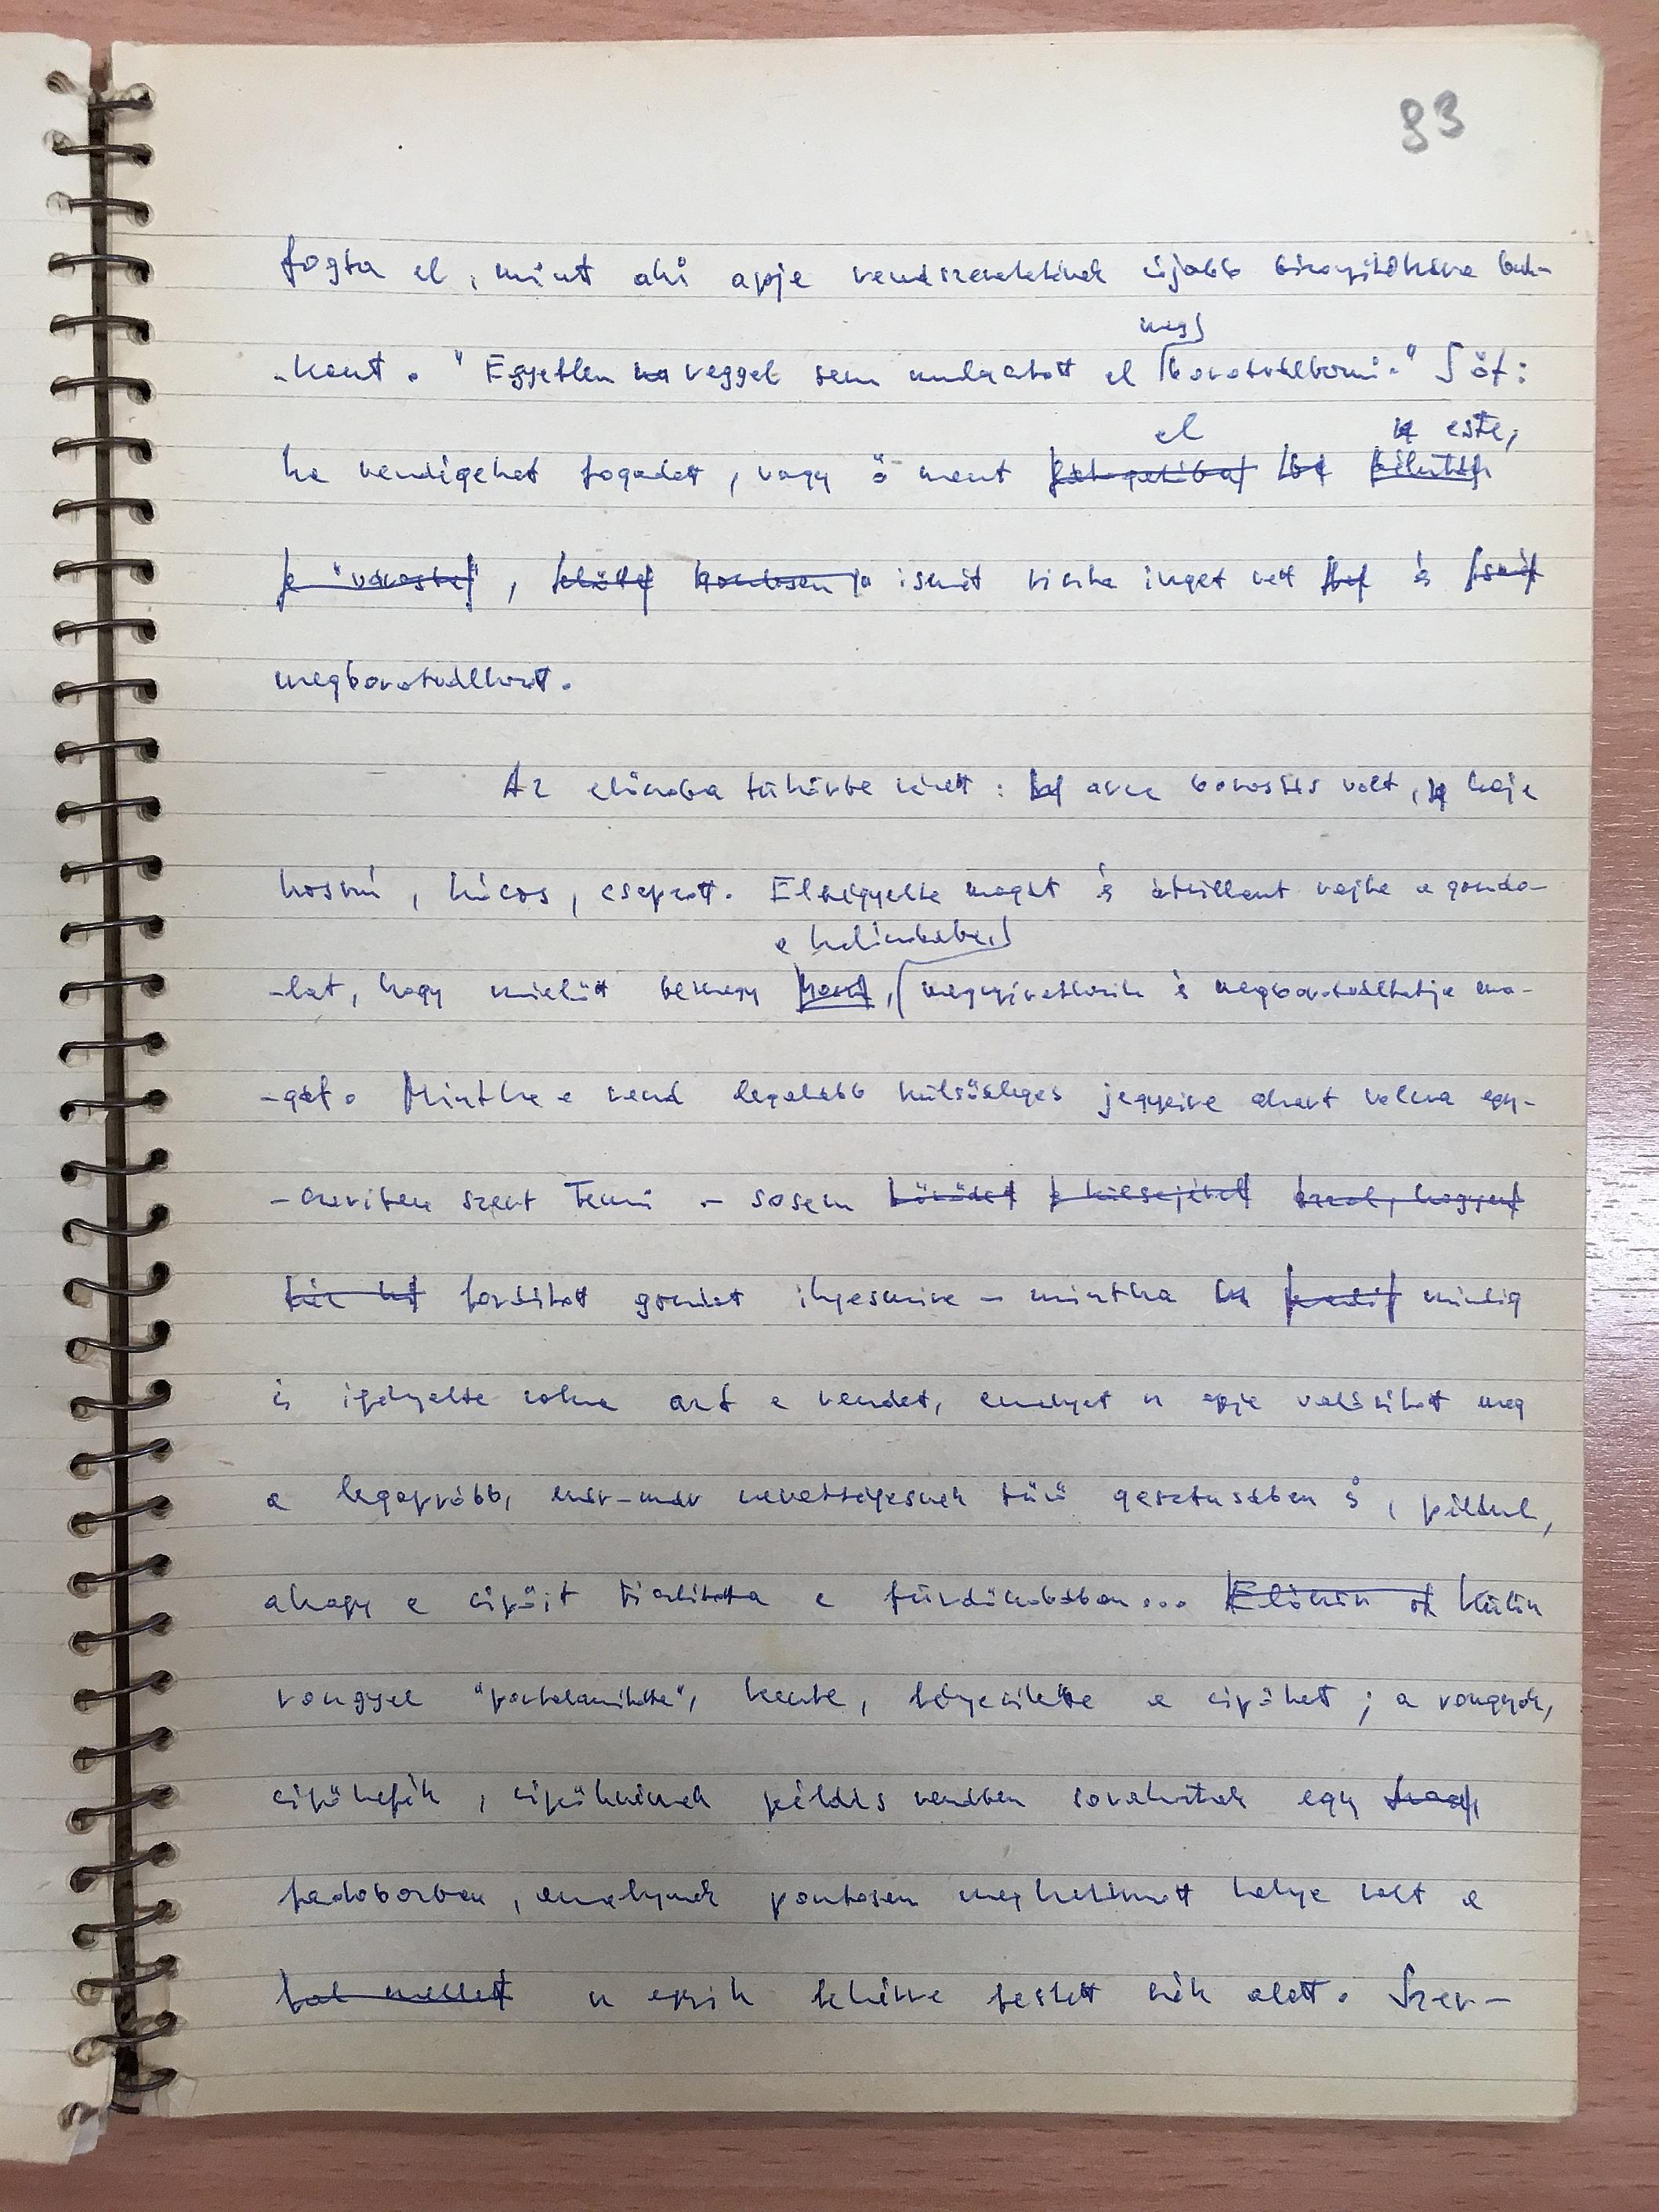 93
fogta el, mint aki apja rendszeretetének újabb bizonyítékára buk-
-kant. "Egyetlen reggel sem mulasztott el megborotválkozni." Sőt:
ha vendégeket fogadott, vagy ő ment el este,
ismét tiszta inget vett és
megborotválkozott.
Az előszoba tükörbe nézett: arca borostás volt, haja
hosszú, kócos, csapzott. Elnézegette magát és átvillant rajta a gondo-
-lat, hogy mielőtt bemegy a kórházba, megnyiratkozik és megborotváltatja ma-
-gát. Mintha a rend legalább külsődleges jegyeire akart volna egy-
-szeriben szert tenni - sosem
fordított gondot ilyesmire - mintha mindig
is igényelte volna azt a rendet, amelyet az apja valósított meg
a legapróbb, már-már nevetségesnek tűnő gesztusában is, például,
ahogy a cipőit tisztította a fürdőszobában... Külön
ronggyal "portalanította", kente, fényesítette a cipőket; a rongyok,
cipőkefék, cipőkrémek példás rendben sorakoztak egy
fadobozban, amelynek pontosan meghatározott helye volt a
az apró fehérre festett szék alatt. Szer-